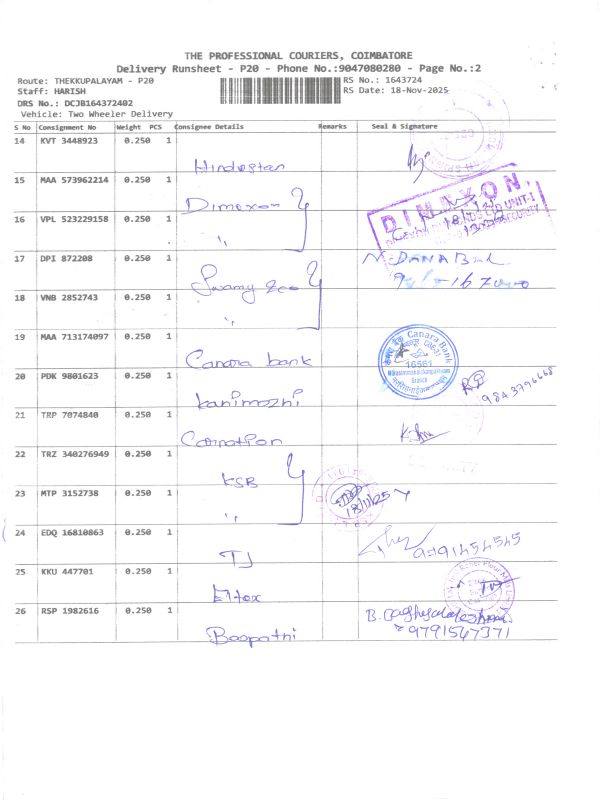 THE PROFESSIONAL COURIERS, COIMBATORE
Delivery Runsheet - P20 - Phone No.:9047080280 - Page No.:2
Route: THEKKUPALAYAM - P20 RS No.: 1643724
Staff: HARISH RS Date: 18-Nov-2025
DRS No.: DCJB164372402
Vehicle: Two Wheeler Delivery
S No Consignment No Weight PCS Consignee Details Remarks Seal & Signature
14 KVT 3448923 0.250 1
Hindustan
15 MAA 573962214 0.250 1
Dimexon
DIMEXON
16 VPL 523229158 0.250 1
"
UNIT-1
17 DPI 872208 0.250 1
N. DANABAL
Swamy
18 VNB 2852743 0.250 1
"
19 MAA 713174097 0.250 1
Canara bank
Canara Bank
16561
Branch
20 PDK 9801623 0.250 1
Kanimozhi
9843796668
21 TRP 7074840 0.250 1
Carnation
22 TRZ 340276949 0.250 1
KSB
23 MTP 3152738 0.250 1
"
18/11/25
24 EDQ 16810863 0.250 1
TJ
25 KKU 447701 0.250 1
26 RSP 1982616 0.250 1
Boopathi
B.
9791547371